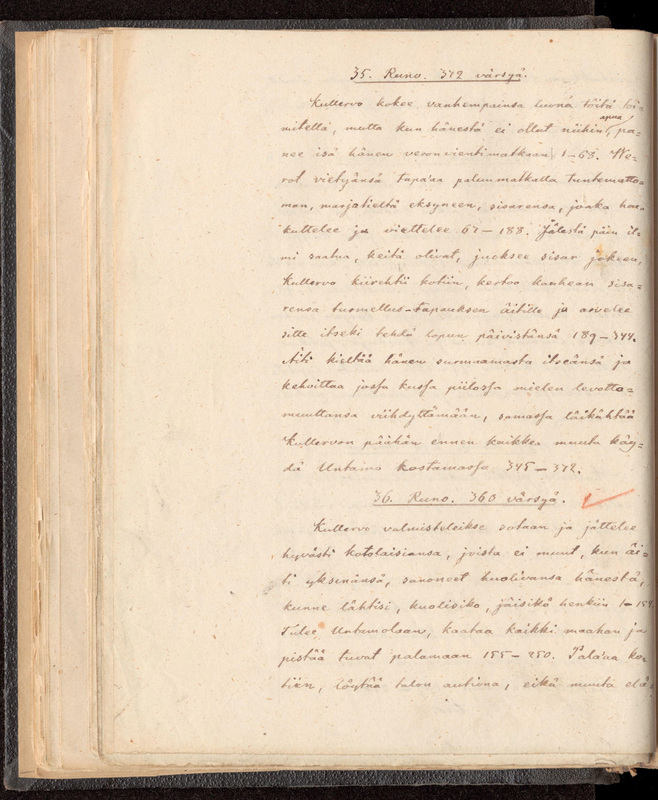 35. Runo. 372 värsyä.
Kullervo kokee vanhempainsa luona töitä toi=
mitella, mutta kun hänestä ei ollut niihin apua, pa=
nee isä hänen veronvientimatkaan 1–68. We=
rot vietyänsä tapaa paluumatkalla tuntematto=
man, marjatieltä eksyneen, sisarensa, jonka hou=
kuttelee ja viettelee 69–188. Jälestä päin il=
mi saatua, keitä olivat, juoksee sisar jokeen,
Kullervo kiirehtii kotiin, kertoo kauhean sisa=
rensa turmellus-tapauksen äitille ja arvelee
sitte itseki tehdä lopun päivistänsä 189–344.
Äiti kieltää hänen surmaamasta itseänsä ja
kehoittaa jossa kussa piilossa mielen levotto=
muuttansa viihdyttämään, samassa läikähtää
Kullervon päähän ennen kaikkea muuta käy=
dä Untamo kostamassa 345–372.
36. Runo. 360 värsyä.
Kullervo valmisteleikse sotaan ja jättelee
hyvästi kotolaisiansa, joista ei muut, kun äi=
ti yksinänsä, sanoneet huolivansa hänestä,
kunne lähtisi, kuolisiko, jäisikö henkiin 1–154.
Tulee Untamolaan, kaataa kaikki maahan ja
pistää tuvat palamaan 155–250. Palaa ko=
tiin, löytää talon autiona, eikä muuta elä=